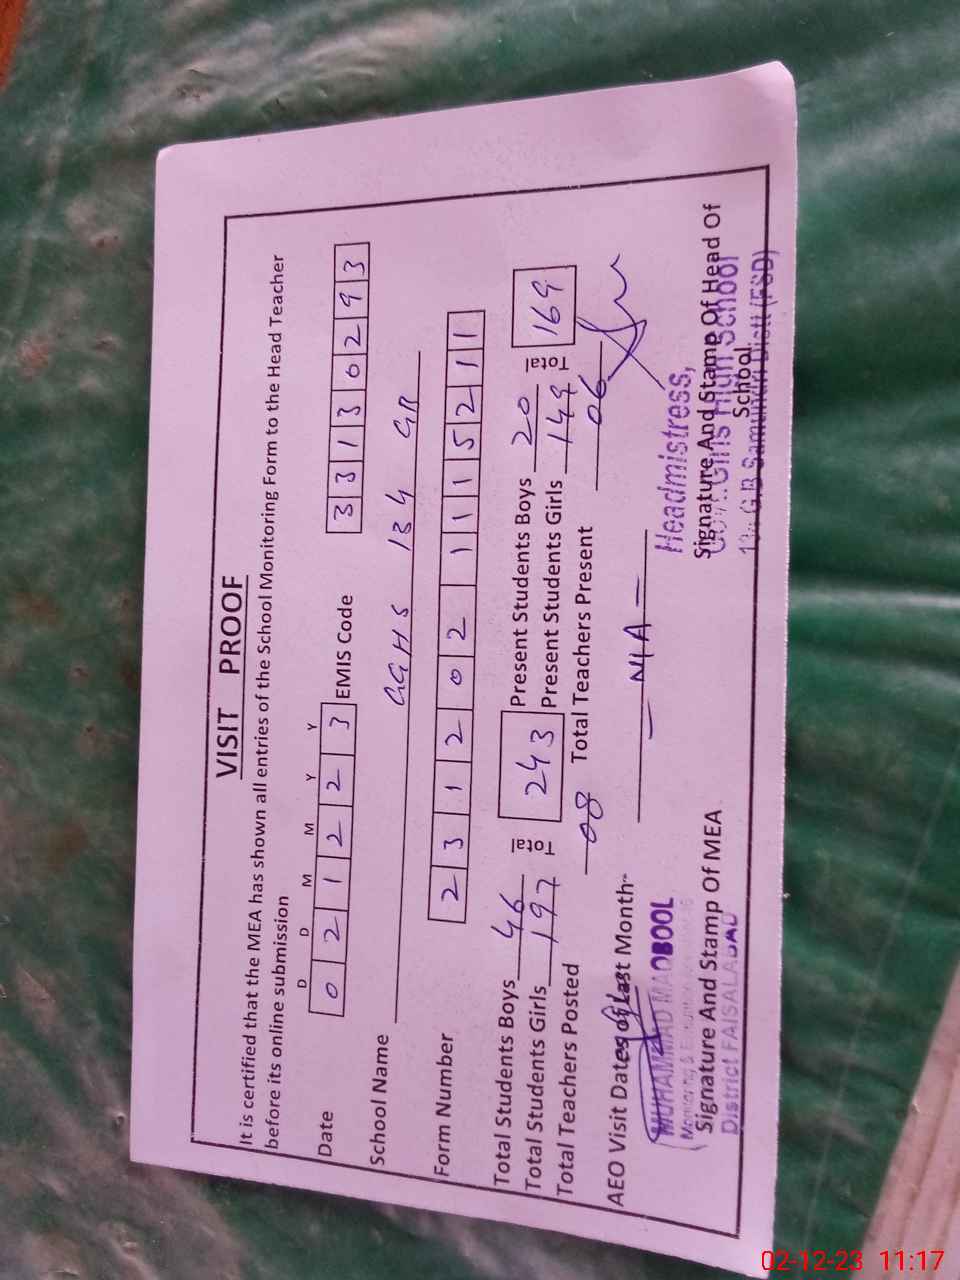 VISIT PROOF
It is certified that the MEA has shown all entries of the School Monitoring Form to the Head Teacher
before its online submission
D D M M Y Y
Date 0 2 1 2 2 3 EMIS Code 3 3 1 3 0 2 9 3
School Name GGHS 134 GB
Form Number 2 3 1 2 0 2 1 1 5 2 1 1
Total Students Boys 46 Total 243 Present Students Boys 20 Total 169
Total Students Girls 197 Present Students Girls 149
Total Teachers Posted 08 Total Teachers Present 06
AEO Visit Dates of Last Month- - N/A -
MUHAMMAD MAQBOOL
Headmistress,
Signature And Stamp Of MEA
Signature And Stamp Of Head Of
School
Govt. Girls High School
District FAISALABAD
G.B Samundri Distt (FSD)
02-12-23 11:17